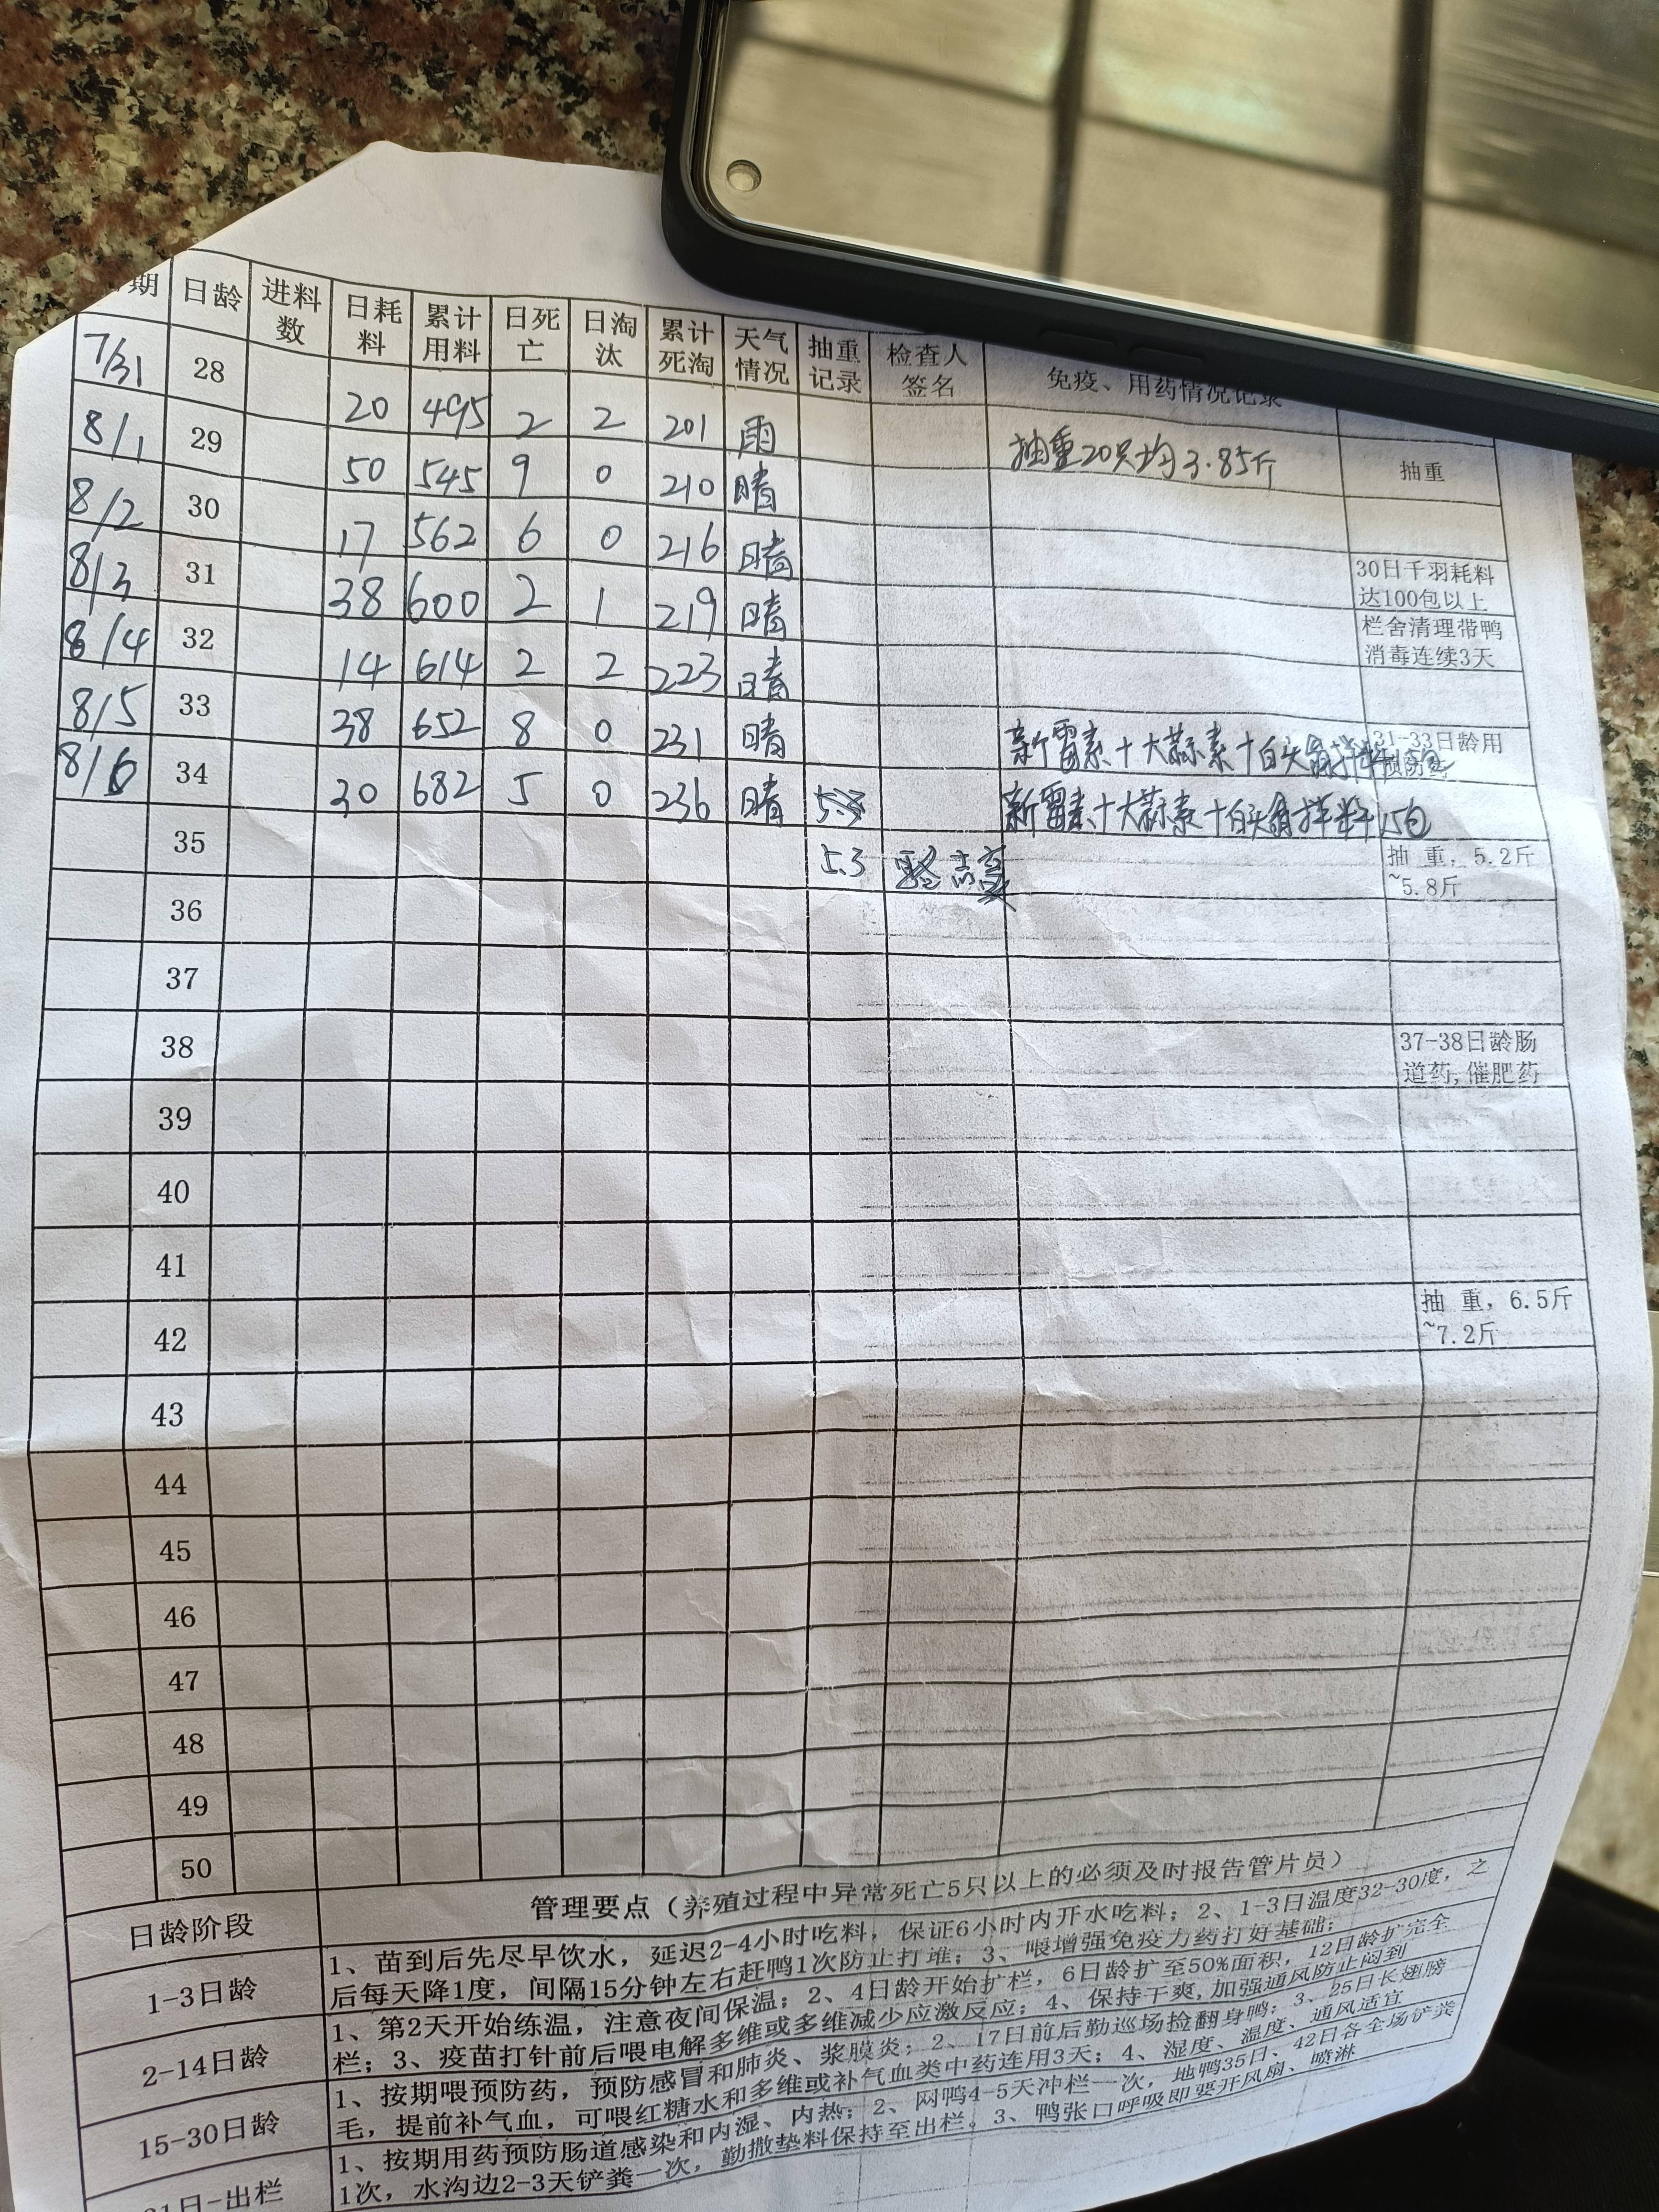 期 日龄 进料数 日耗料 累计用料 日死亡 日淘汰 累计死淘 天气情况 抽重记录 检查人签名 免疫、用药情况记录
7/31 28 20 495 2 2 201 雨 抽重20只均3.85斤 抽重
8/1 29 50 545 9 0 210 晴
8/2 30 17 562 6 0 216 晴 30日千羽耗料达100包以上
8/3 31 38 600 2 1 219 晴 栏舍清理带鸭消毒连续3天
8/4 32 14 614 2 2 223 晴
8/5 33 38 652 8 0 231 晴 新霉素+大蒜素+白头翁拌料 31-33日龄用
8/6 34 30 682 5 0 236 晴 新霉素+大蒜素+白头翁拌料15包
35 5.3 抽 重, 5.2斤~5.8斤
36
37
38 37-38日龄肠道药,催肥药
39
40
41
42 抽 重, 6.5斤~7.2斤
43
44
45
46
47
48
49
50
日龄阶段 管理要点（养殖过程中异常死亡5只以上的必须及时报告管片员）
1-3日龄 1、苗到后先尽早饮水，延迟2-4小时吃料，保证6小时内开水吃料；2、1-3日温度32-30度，之
后每天降1度，间隔15分钟左右赶鸭1次防止打堆；3、喂增强免疫力药打好基础；
2-14日龄 1、第2天开始练温，注意夜间保温；2、4日龄开始扩栏，6日龄扩至50%面积，12日龄扩完全
栏；3、疫苗打针前后喂电解多维或多维减少应激反应；4、保持干爽,加强通风防止闷到
15-30日龄 1、按期喂预防药，预防感冒和肺炎、浆膜炎；2、17日前后勤巡场捡翻身鸭；3、25日长翅膀
毛，提前补气血，可喂红糖水和多维或补气血类中药连用3天；4、湿度、温度、通风适宜
31日-出栏 1、按期用药预防肠道感染和内湿、内热；2、网鸭4-5天冲栏一次，地鸭35日、42日各全场铲粪
1次，水沟边2-3天铲粪一次，勤撒垫料保持至出栏。3、鸭张口呼吸即要开风扇、喷淋